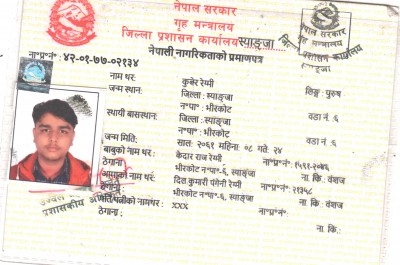 नेपाल सरकार
गृह मन्त्रालय
जिल्ला प्रशासन कार्यालय स्याङ्जा
नेपाली नागरिकताको प्रमाणपत्र
ना॰प्र॰नं॰ : ४२-०१-७७-०२१३४
नाम थर : कुबेर रेग्मी
लिङ्ग : पुरुष
जन्म स्थान : जिल्ला : स्याङ्जा
न॰पा॰ : भीरकोट
वडा नं ६
स्थायी बासस्थान : जिल्ला : स्याङ्जा
न॰पा॰ : भीरकोट
वडा नं॰ ६
जन्म मिति : साल: २०६१ महिना: ०८ गते: २४
बाबुको नाम थर : केदार राज रेग्मी
ठेगाना : भीरकोट न॰पा॰-६, स्याङ्जा
ना॰ कि : वंशज
आमाको नाम थर : दिल कुमारी पंगेनी रेग्मी
ठेगाना : भीरकोट न॰पा॰-६, स्याङ्जा
ना॰ कि : वंशज
पति/पत्नीको नामथर : xxx
ना॰प्र॰नं॰ :
ना. कि :
नेपाल सरकार
गृह मन्त्रालय
जिल्ला प्रशासन कार्यालय
स्याङ्जा
प्रशासकीय अधिकृत